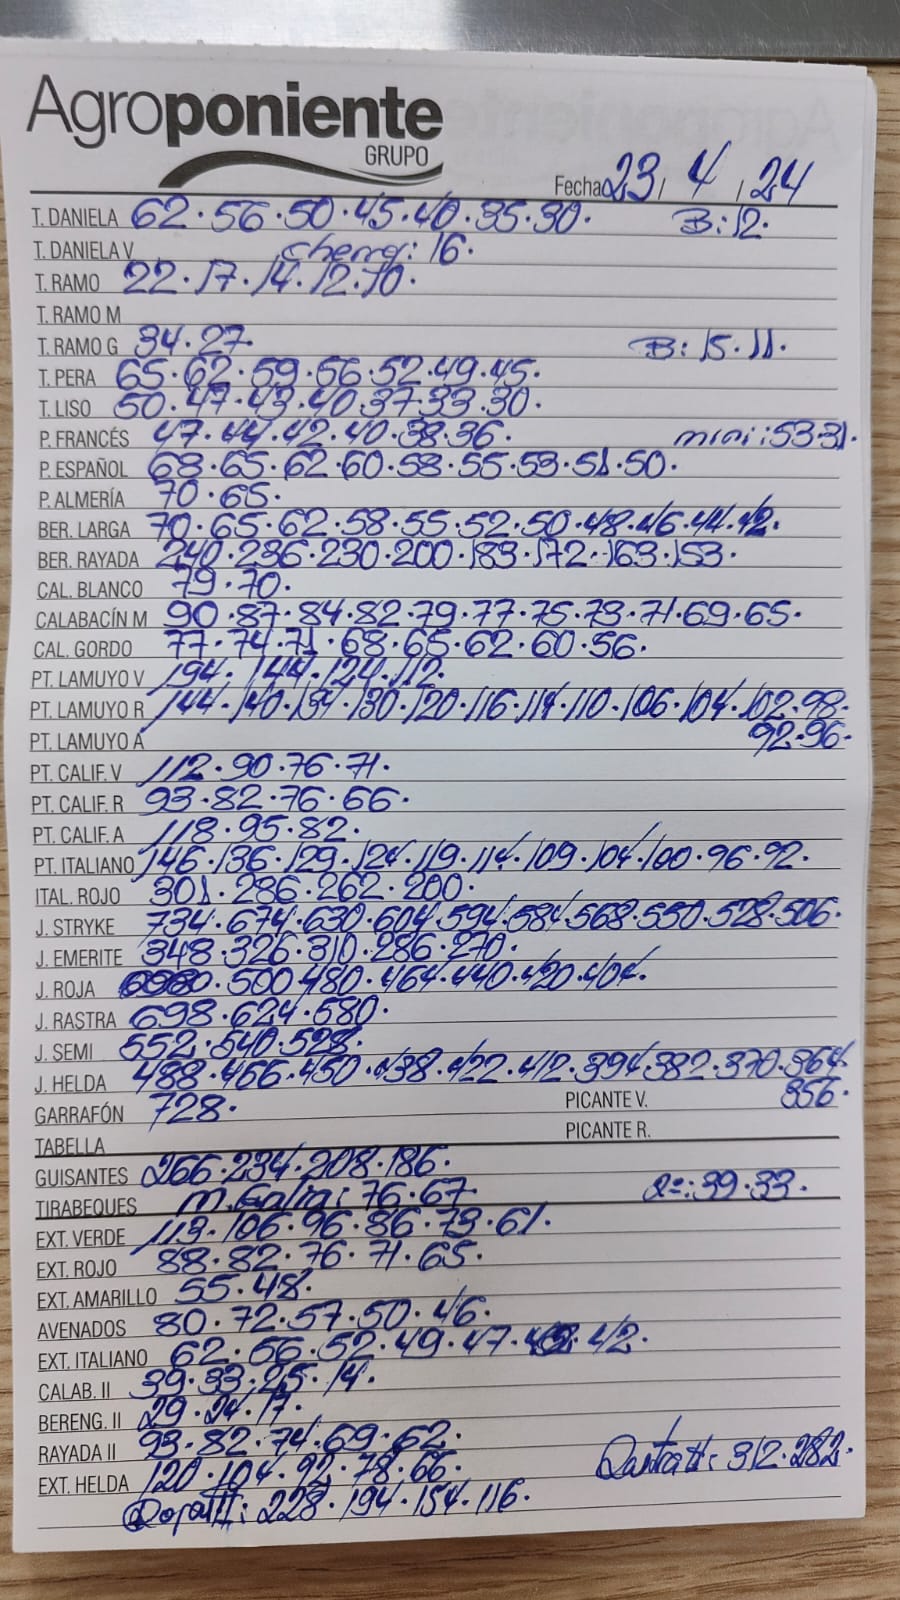 Agroponiente
GRUPO
Fecha 23 / 4 / 24
T. DANIELA 62·56·50·45·40·35·30· B:12·
T. DANELA V cherry: 16·
T. RAMO 22·17·14·12·10·
T. RAMO M
T. RAMO G 34·27· B:15·11·
T. PERA 65·62·59·56·52·49·45·
T. LISO 50·47·43·40·37·33·30·
P. FRANCÉS 47·44·42·40·38·36· mini:53·31·
P. ESPAÑOL 68·65·62·60·58·55·53·51·50·
P. ALMERÍA 70·65·
BER. LARGA 70·65·62·58·55·52·50·48·46·44·42·
BER. RAYADA 240·236·230·200·183·172·163·153·
CAL. BLANCO 79·70·
CALABACÍN M 90·87·84·82·79·77·75·73·71·69·65·
CAL. GORDO 77·74·71·68·65·62·60·56·
PT. LAMUYO V 194·144·124·112·
PT. LAMUYO R 144·140·134·130·120·116·114·110·106·104·102·98·
PT. LAMUYO A 92·96·
PT. CALIF. V 112·90·76·71·
PT. CALIF. R 93·82·76·66·
PT. CALIF. A 118·95·82·
PT. ITALIANO 146·136·129·124·119·114·109·104·100·96·92·
ITAL. ROJO 301·286·262·200·
J. STRYKE 734·674·630·604·594·584·568·550·528·506·
J. EMERITE 348·326·310·286·270·
J. ROJA ·500·480·464·440·420·404·
J. RASTRA 698·624·580·
J. SEMI 552·540·528·
J. HELDA 488·466·450·438·422·412·394·382·370·364
GARRAFÓN 728· PICANTE V. 356·
TABELLA PICANTE R.
GUISANTES 266·234·208·186·
TIRABEQUES M. Galia: 76·67· 2ª:39·33·
EXT. VERDE 113·106·96·86·73·61·
EXT. ROJO 88·82·76·71·65·
EXT. AMARILLO 55·48·
AVENADOS 80·72·57·50·46·
EXT. ITALIANO 62·56·52·49·47· ·42·
CALAB. II 39·33·25·14·
BERENG. II 29·24·17·
RAYADA II 93·82·74·69·62·
EXT. HELDA 120·104·92·78·66· II: 312·282·
Roja II: 228·194·154·116·